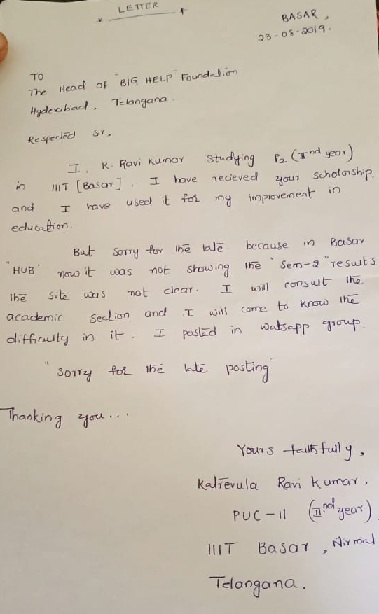 LETTER
BASAR,
23-05-2019.
TO
The Head of "BIG HELP" Foundation
Hyderabad, Telangana.
Respected Sr,
I, K. Ravi Kumar Studying P2 (IInd year)
in IIIT [Basar]. I have recieved your scholorship
and I have used it for my improvement in
education.
But sorry for the late because in Basar
"HUB" now it was not showing the "Sem-2" results
the site was not clear. I will consult the
academic section and I will come to know the
difficulty in it. I posted in watsapp group.
"Sorry for the late posting"
Thanking you...
Yours faithfully,
Ravi Kumar.
PUC-II (IInd year)
IIIT Basar, Nirmal
Telangana.